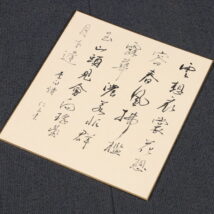 雲想衣裳花想
容春風拂檻
露華濃若非群
玉山頭見會向瑤臺
月下逢 李白詩